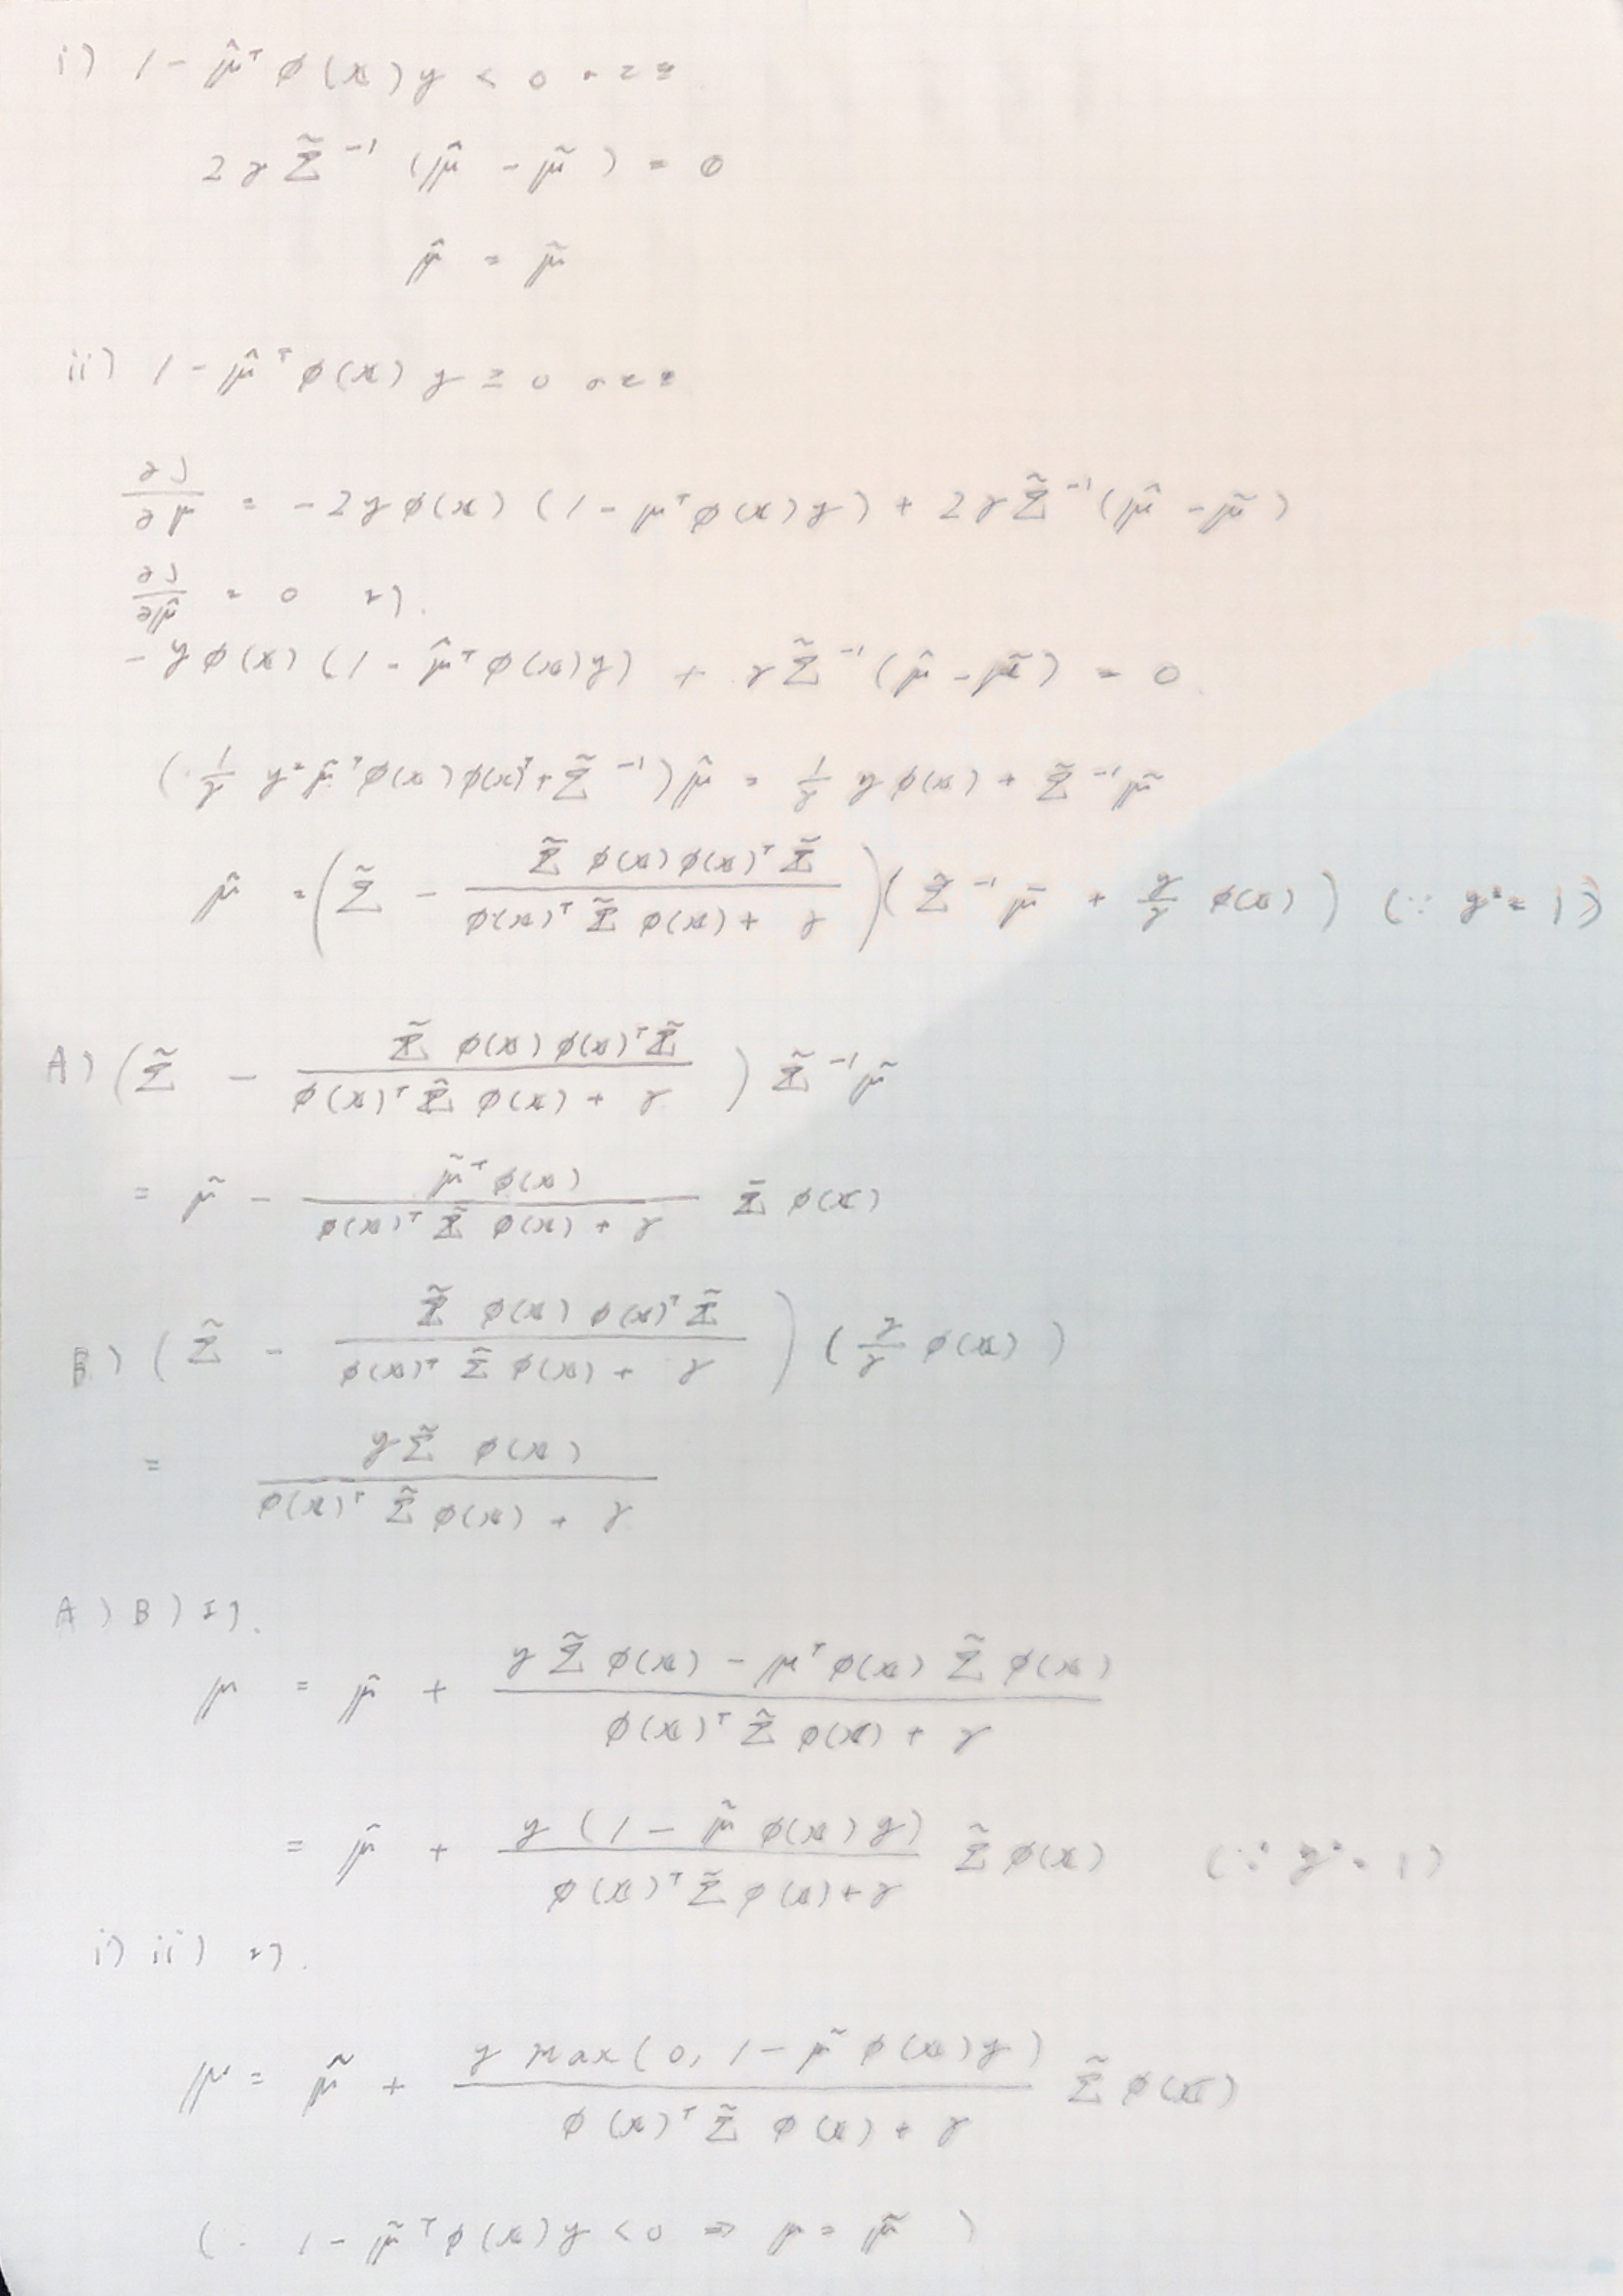 i) 1 - μ̂ᵀ φ(x) y < 0 のとき
2γ Σ̃⁻¹ (μ̂ - μ̃) = 0
μ̂ = μ̃
ii) 1 - μ̂ᵀ φ(x) y ≥ 0 のとき
∂J/∂μ = -2yφ(x) (1 - μᵀφ(x)y) + 2γΣ̃⁻¹(μ̂ - μ̃)
∂J/∂μ̂ = 0 より.
- yφ(x) (1 - μ̂ᵀφ(x)y) + γΣ̃⁻¹(μ̂ - μ̃) = 0
(1/γ y² μ̃ᵀφ(x)φ(x)ᵀ + Σ̃⁻¹) μ̂ = 1/γ yφ(x) + Σ̃⁻¹μ̃
μ̂ = (Σ̃ - Σ̃ φ(x)φ(x)ᵀ Σ̃ / (φ(x)ᵀ Σ̃ φ(x) + γ)) (Σ̃⁻¹ μ̃ + y/γ φ(x)) (∵ y² = 1)
A) (Σ̃ - Σ̃ φ(x)φ(x)ᵀΣ̃ / (φ(x)ᵀ Σ̃ φ(x) + γ)) Σ̃⁻¹μ̃
= μ̃ - μ̃ᵀφ(x) / (φ(x)ᵀ Σ̃ φ(x) + γ) Σ̃ φ(x)
B) (Σ̃ - Σ̃ φ(x)φ(x)ᵀΣ̃ / (φ(x)ᵀ Σ̃ φ(x) + γ)) (y/γ φ(x))
= yΣ̃ φ(x) / (φ(x)ᵀ Σ̃ φ(x) + γ)
A) B) より.
μ = μ̃ + (yΣ̃φ(x) - μᵀφ(x) Σ̃ φ(x)) / (φ(x)ᵀ Σ̃ φ(x) + γ)
= μ̃ + y (1 - μ̃ φ(x) y) / (φ(x)ᵀ Σ̃ φ(x) + γ) Σ̃φ(x) (∵ y² = 1)
i) ii) より.
μ = μ̃ + y max(0, 1 - μ̃ φ(x)y) / (φ(x)ᵀ Σ̃ φ(x) + γ) Σ̃ φ(x)
(∵ 1 - μ̃ᵀφ(x)y < 0 ⇒ μ = μ̃)